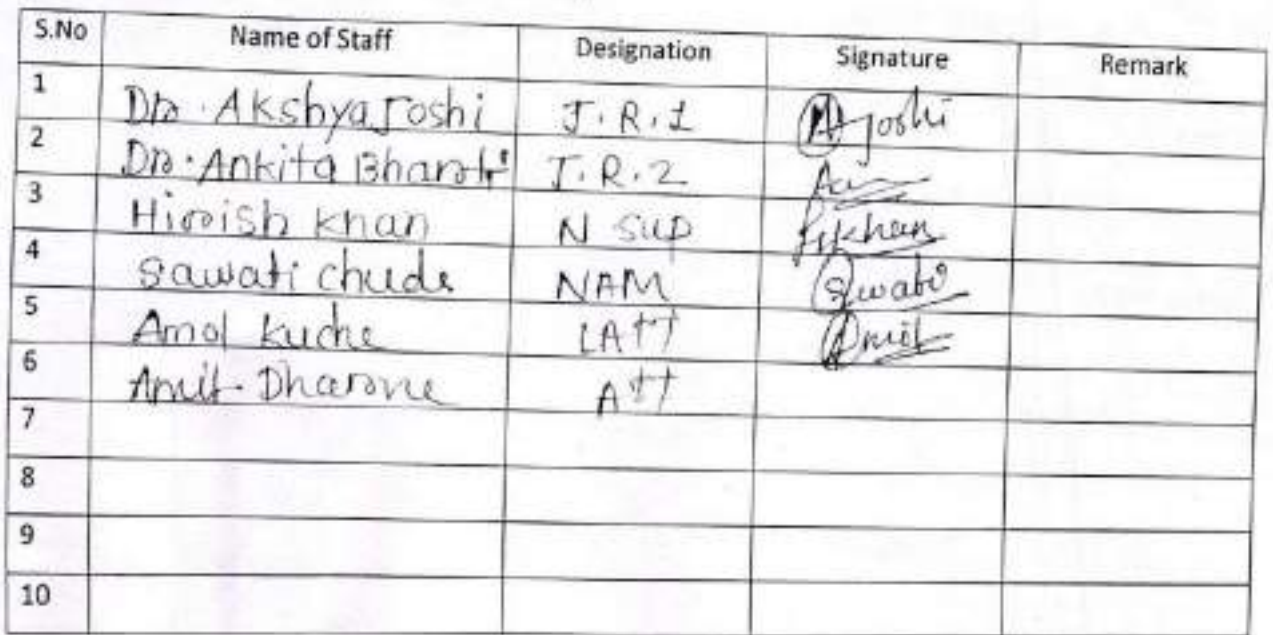 S.No Name of Staff Designation Signature Remark
1 Dr. Akshya Joshi J.R.1 AJoshi
2 Dr. Ankita Bharti J.R.2
3 Hirish Khan N Sup Khan
4 Sawati chude NAM Swati
5 Amol Kuche LATT Amit
6 Amit Dharone ATT
7
8
9
10